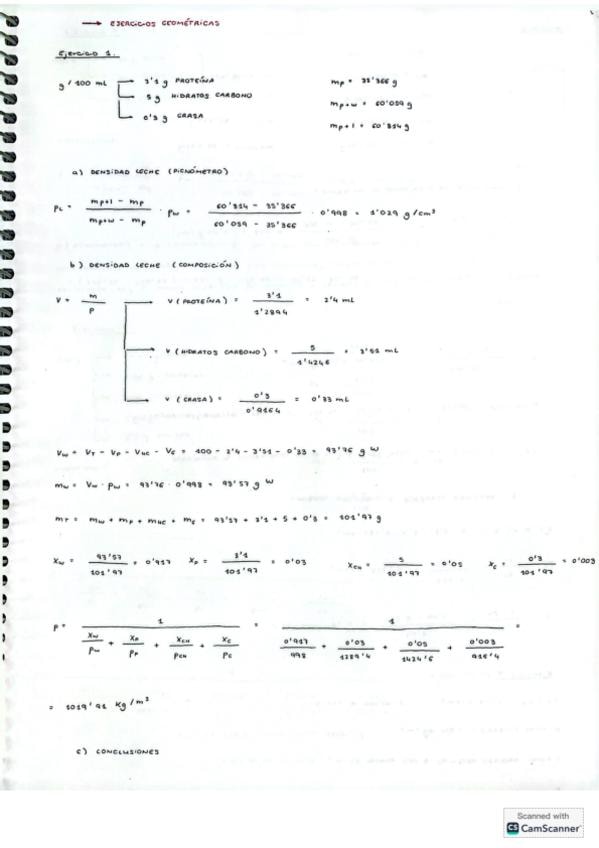 → EJERCICIOS GEOMÉTRICAS
Ejercicio 1.
g / 100 mL → 3'1 g PROTEÍNA
→ 5 g HIDRATOS CARBONO
→ 0'3 g GRASA
mp = 35'366 g
mp+w = 60'059 g
mp+l = 60'814 g
a) DENSIDAD LECHE (PICNÓMETRO)
ρL = (mp+l - mp) / (mp+w - mp) · ρw = (60'814 - 35'366) / (60'059 - 35'366) · 0'998 = 1'029 g/cm³
b) DENSIDAD LECHE (COMPOSICIÓN)
V = m / ρ → V (PROTEÍNA) = 3'1 / 1'2894 = 2'4 mL
→ V (HIDRATOS CARBONO) = 5 / 1'4246 = 3'51 mL
→ V (GRASA) = 0'3 / 0'9164 = 0'33 mL
Vw = VT - VP - VHC - VG = 100 - 2'4 - 3'51 - 0'33 = 93'76 g W
mw = Vw · ρw = 93'76 · 0'998 = 93'57 g W
mT = mw + mp + mHC + mG = 93'57 + 3'1 + 5 + 0'3 = 101'97 g
Xw = 93'57 / 101'97 = 0'917 XP = 3'1 / 101'97 = 0'03 XCH = 5 / 101'97 = 0'05 XG = 0'3 / 101'97 = 0'003
ρ = 1 / (Xw/ρw + XP/ρP + XCH/ρCH + XG/ρG) = 1 / (0'917/998 + 0'03/1289'4 + 0'05/1424'6 + 0'003/916'4) =
= 1019'91 Kg/m³
c) CONCLUSIONES
Scanned with
CS CamScanner